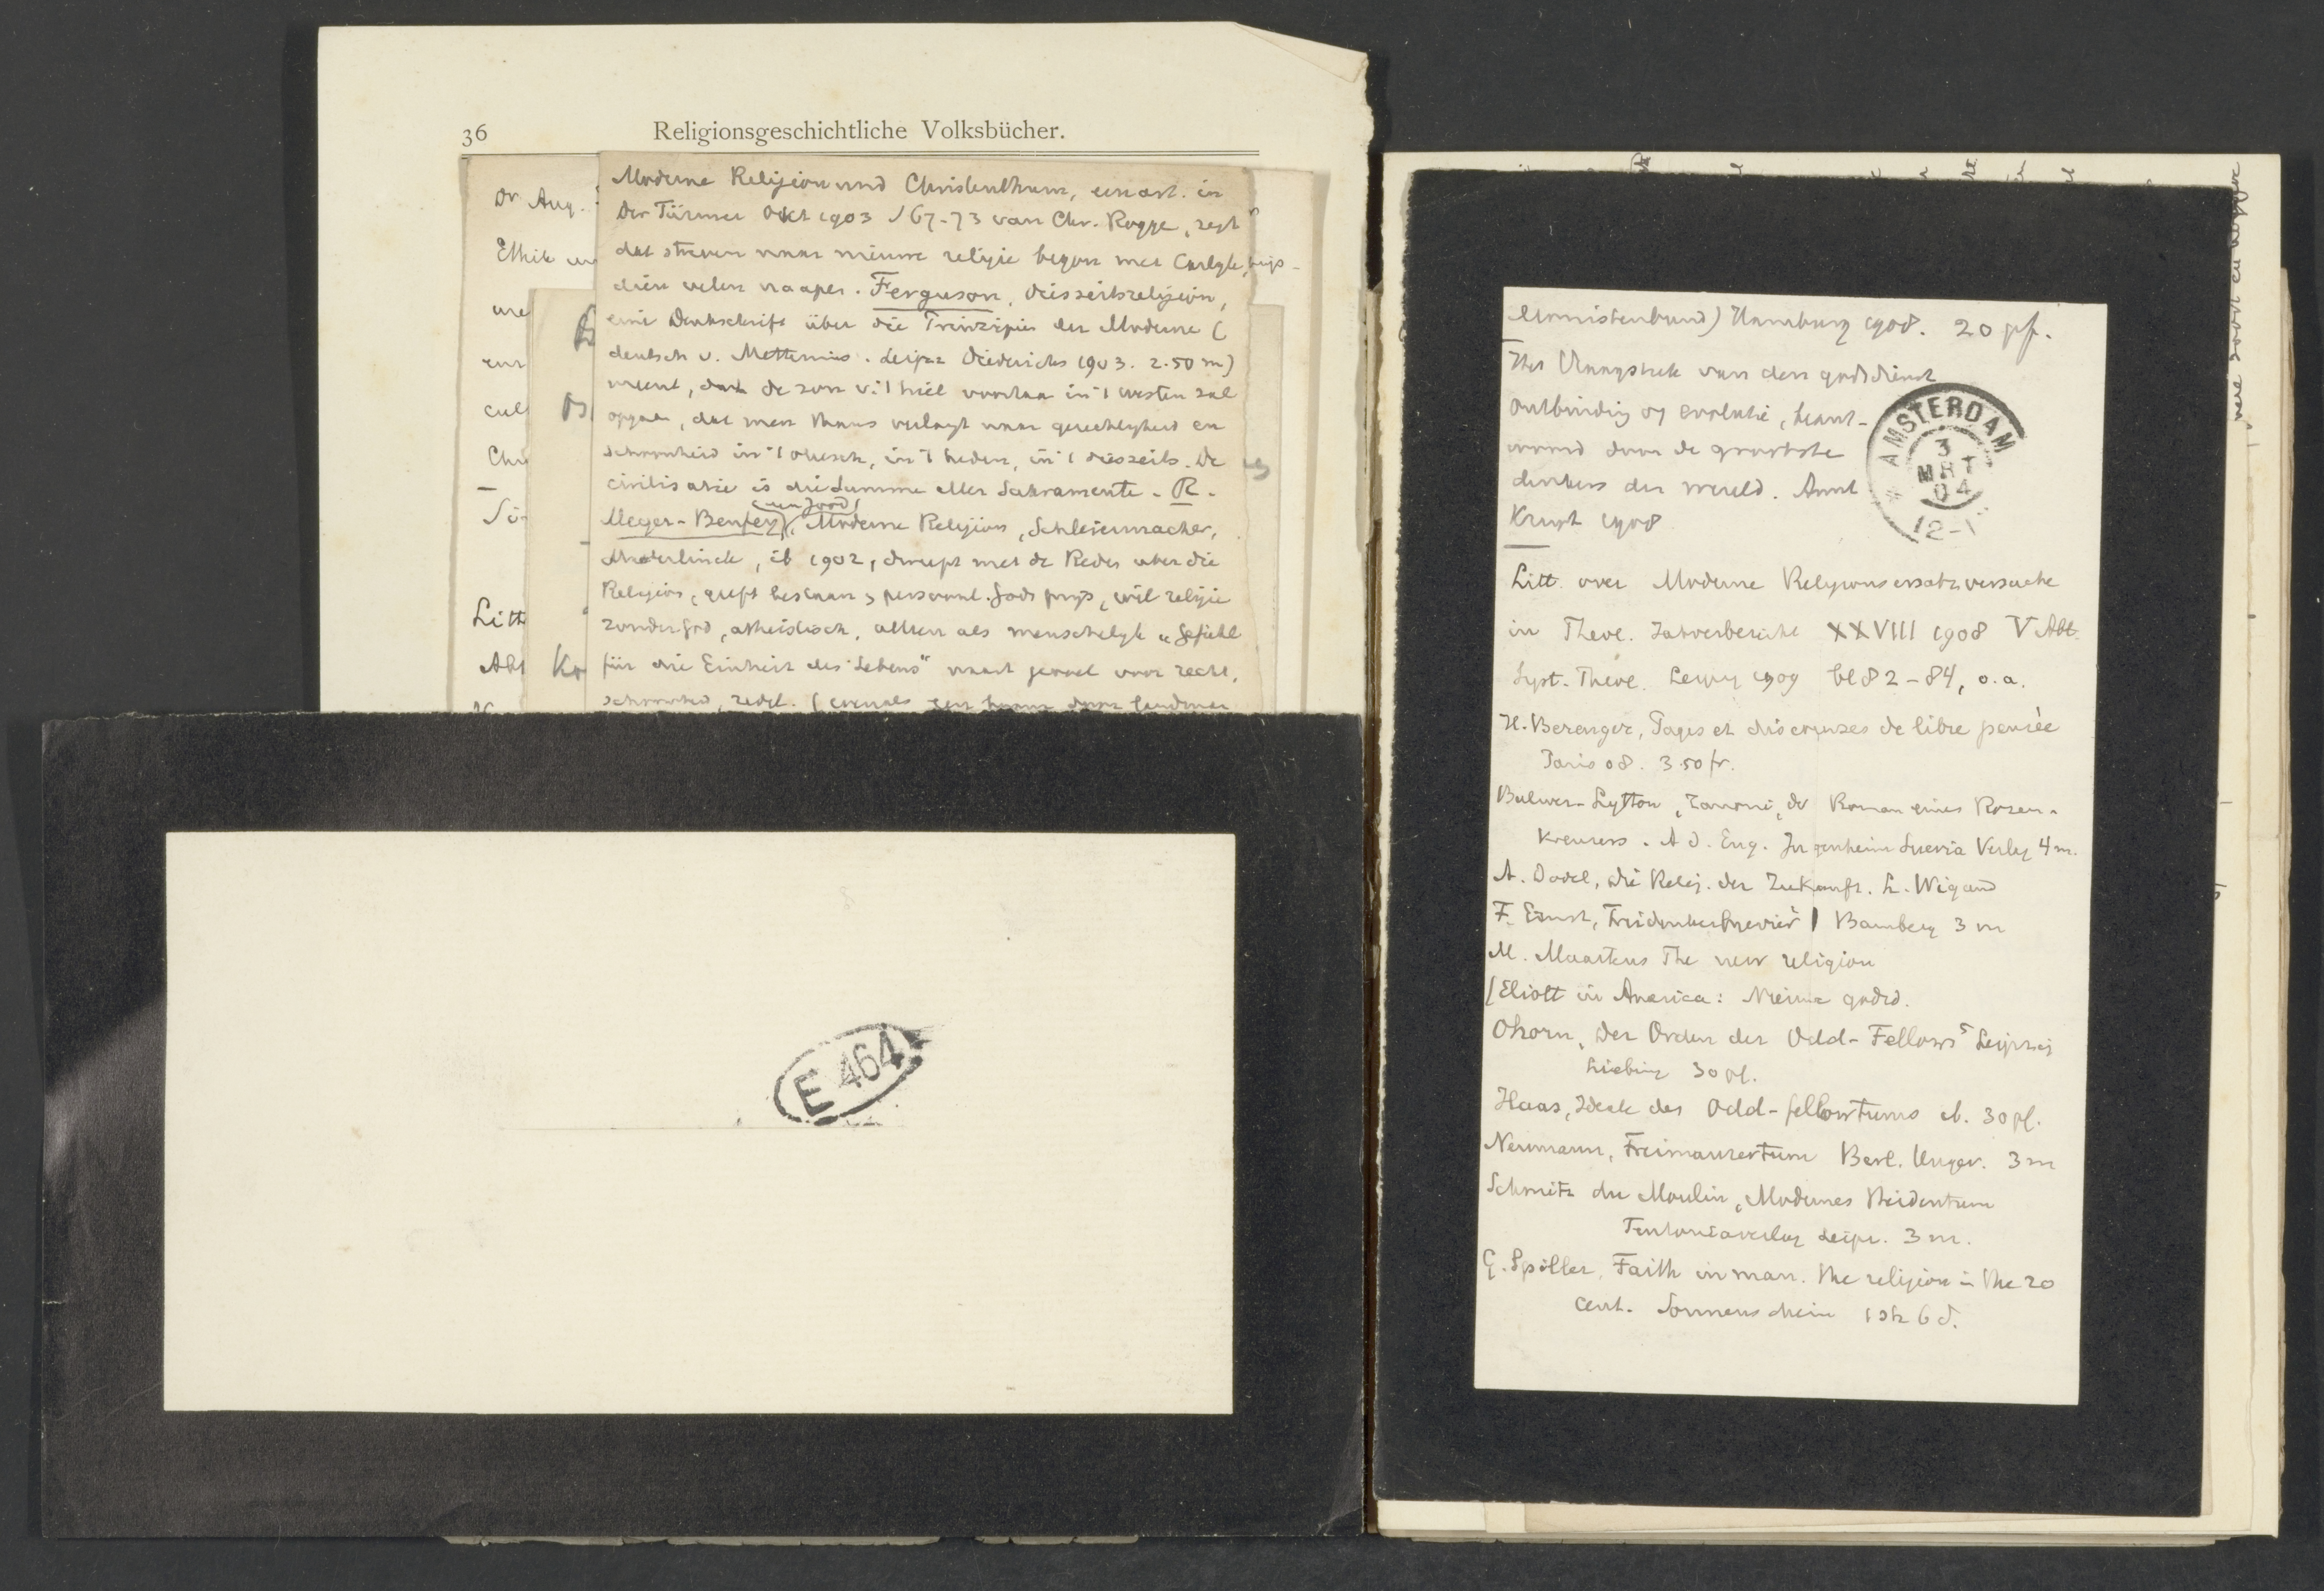 36 Religionsgeschichtliche Volksbücher.
Dr Aug.
Ethik
Litt
Moderne Religion und Christenthum, een art. in
Der Türmer Okt 1903 S 67-73 van Chr. Rogge, zegt
dat streven naar nieuwe religie begon met Carlyle,
dien velen naapen. Ferguson, Diesseitsreligion,
eine Denkschrift über die Prinzipien der Moderne (
deutsch v. Leipz Diederichs 1903. 2.50 m)
meent, dat de zon v. 't heil voortaan in 't westen zal
opgaan, dat men thans verlangt naar gerechtigheid en
schoonheid in 't aardsch, in 't heden, in 't diesseits. De
civilisatie is die Summe aller Sakramente. R.
(een Jood)
Meyer-Benfey, Moderne Religion, Schleiermacher,
Maeterlinck, ib 1902, dweept met de Reden über die
Religion, geeft bestaan v persoonl. Gods prijs, wil religie
zonder God, atheistisch, alleen als menschelijk "Gefühl
für die Einheit des Lebens" naast gevoel voor recht,
schoonheid, zedel. (evenals
E 464
Monistenbund) Hamburg 1908. 20 pf.
Het Vraagstuk van den godsdienst
Ontbinding of evolutie, beant-
woord door de grootste
denkers der wereld. Amst
Kruyt 1908
AMSTERDAM
3
MRT
04
12-1
Litt. over Moderne Religionsersatzversuche
in Theol. Jahresbericht XXVIII 1908 V Abt.
Syst. Theol. Leipz 1909 bl 82-84, o.a.
H. Berenger, Pages et discourses de libre pensée
Paris 08. 3.50 fr.
Bulwer-Lytton, Zanoni, der Roman eines Rosen-
kreuzers. A d. Eng. Jugenheim Suevia Verlag 4 m.
A. Dodel, Die Relig. der Zukunft. L. Wigand
F. Ernst, Freidenkerbrevier I Bamberg 3 m
M. Maartens The new religion
(Eliott in America: Nieuwe godsd.
Ohorn, Der Orden der Odd-Fellows Leipzig
Liebing 30 pf.
Haas, Ideale des Odd-fellowtums ib. 30 pf.
Neumann, Freimaurertum Berl. Unger. 3 m
Schmitz du Moulin, Modernes Heidentum
Teutoniaverlag Leipz. 3 m.
G. Spiller, Faith in man. the religion in the 20
cent. Sonnenschein 1 sh 6 d.